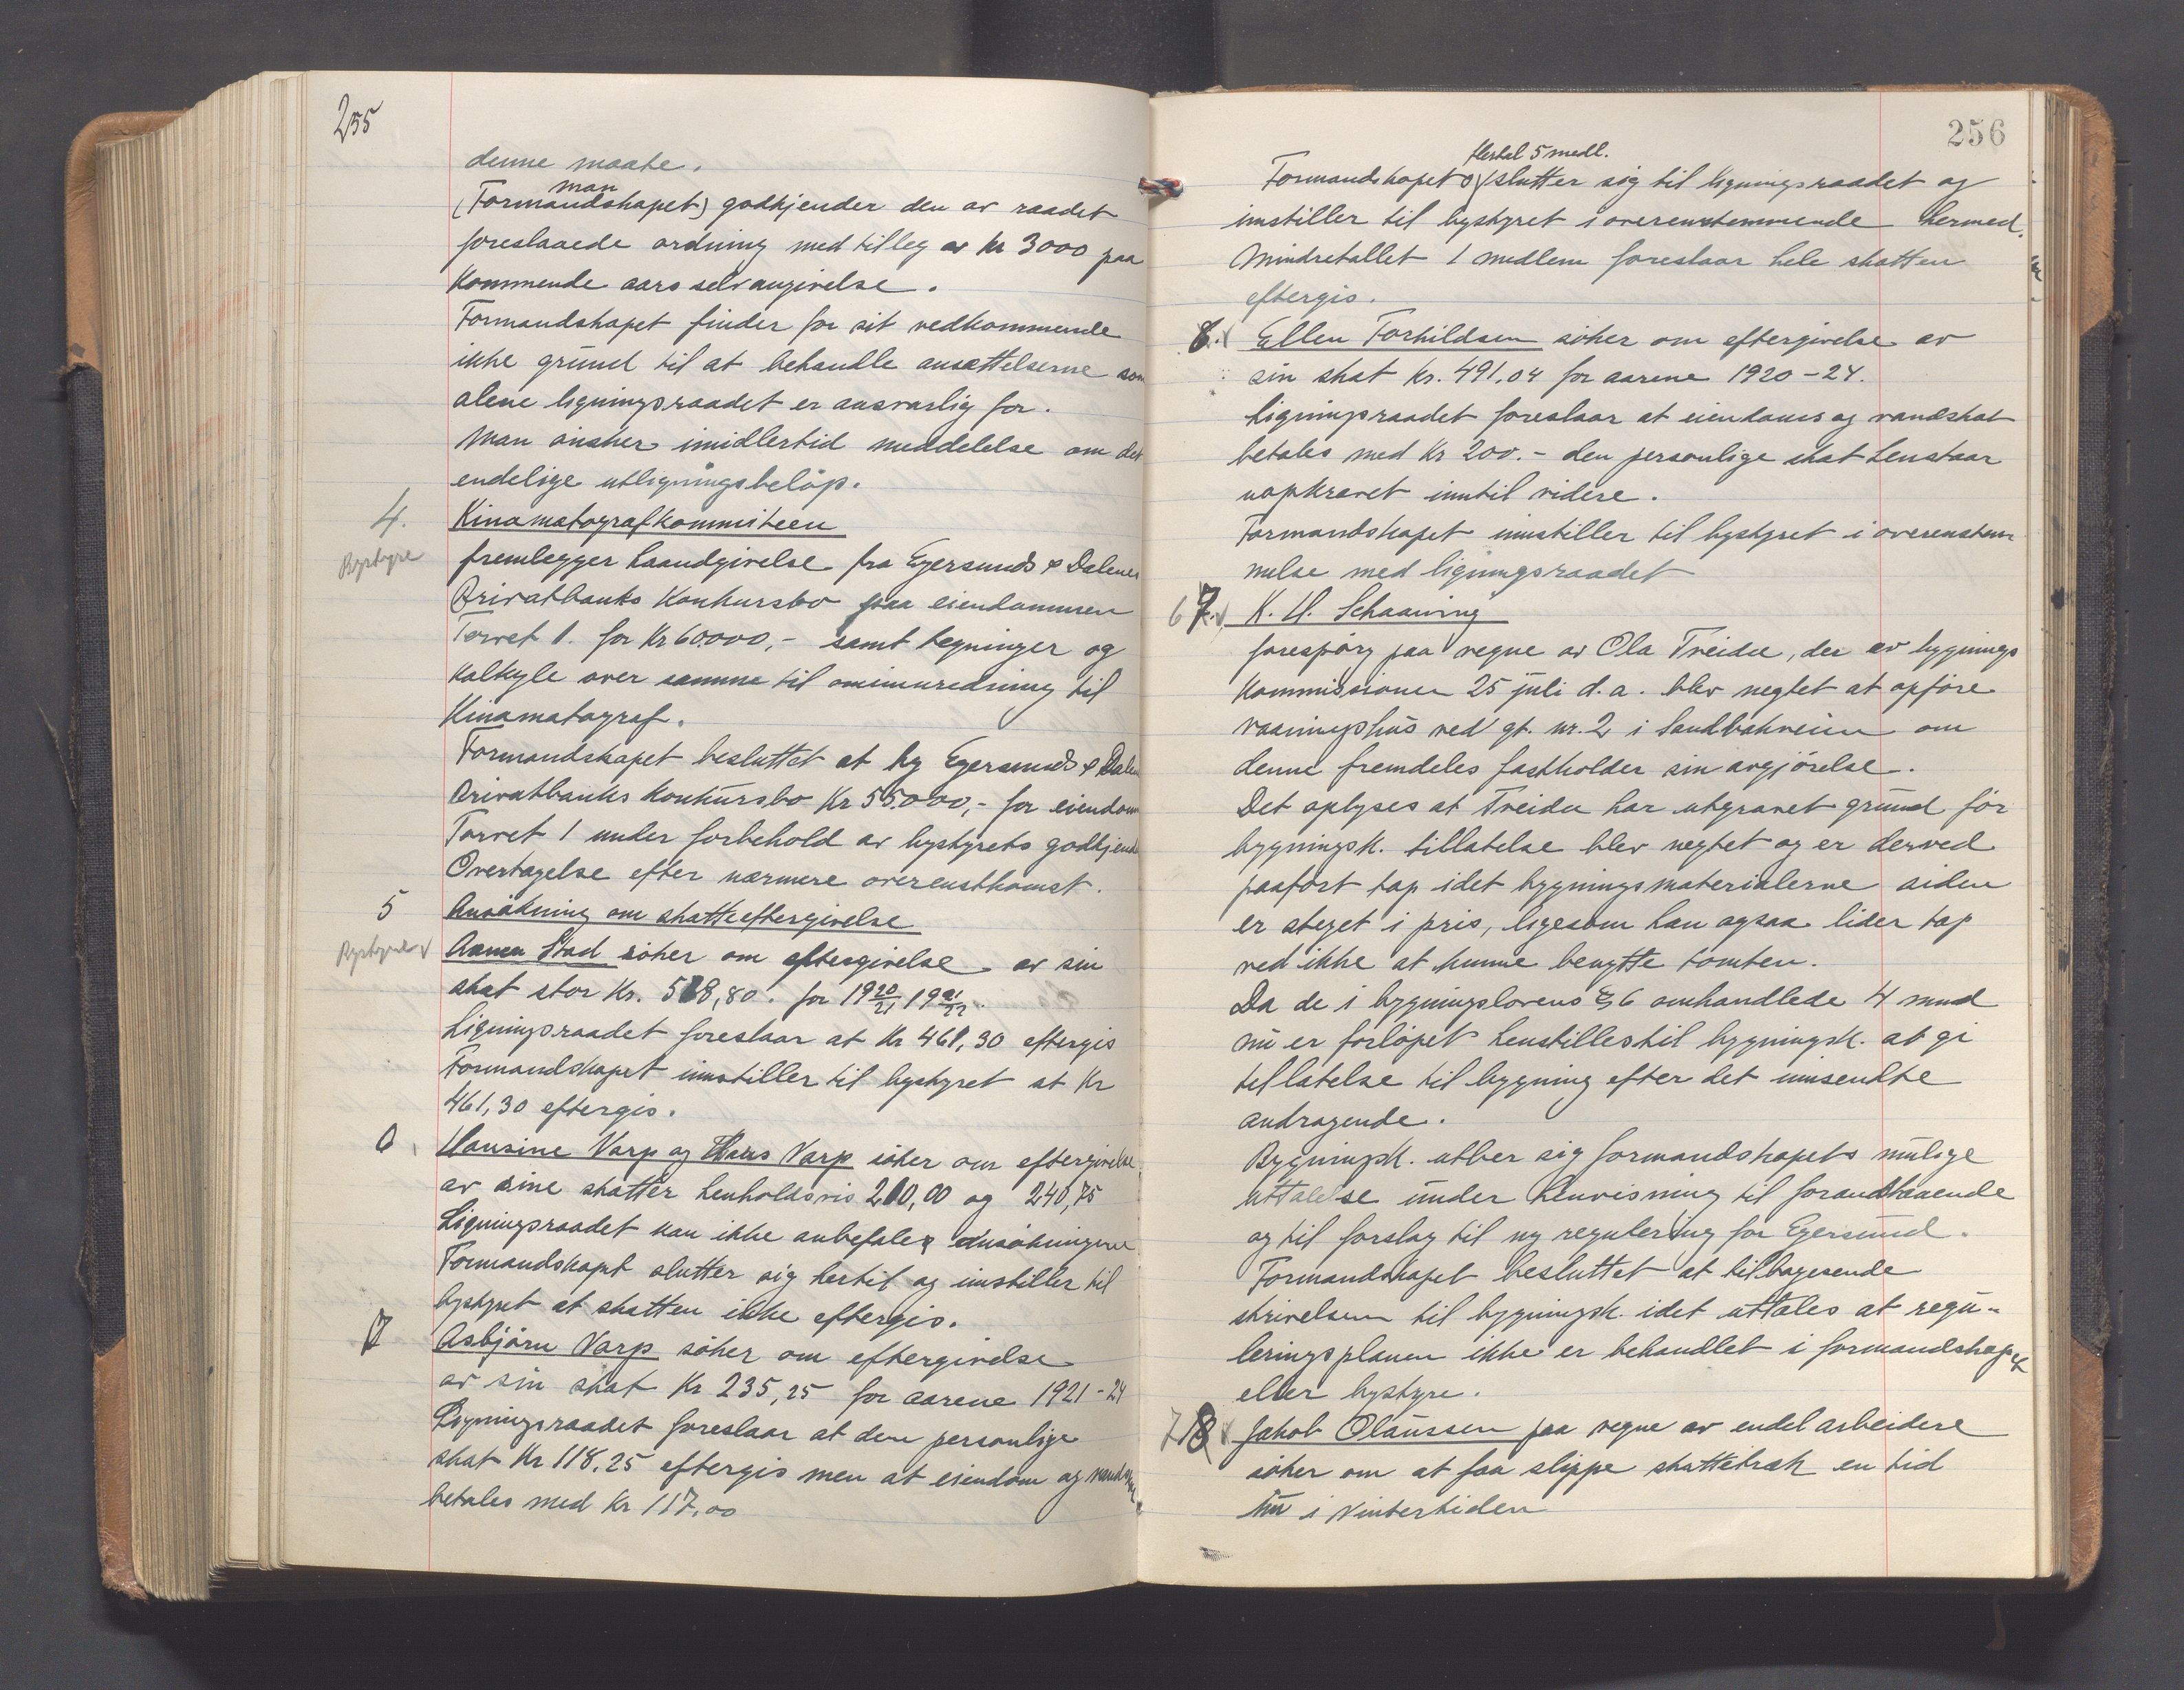 255
denne maate.
man
(Formandskapet) godkjender den av raadet
foreslaaede ordning med tilleg av kr 3000 paa
kommende aars selvangivelse.
Formandskapet finder for sit vedkommende
ikke grund til at behandle ansættelserne som
alene ligningsraadet er ansvarlig for.
Man ønsker imidlertid meddelelse om det
endelige utligningsbeløp.
4. Kinamatografkommiteen
Bystyre
fremlegger haandgivelse fra Egersunds & Dalenes
Privatbanks Konkursbo paa eiendommen
Torvet 1. for Kr 60000,- samt tegninger og
kalkyle over samme til ominnredning til
Kinamatograf.
Formandskapet besluttet at by Egersunds & Dalen
Privatbanks Konkursbo Kr 55.000,- for eiendom
Torvet 1 under forbehold av bystyrets godkjend
Overtagelse efter nærmere overenskomst.
5 Ansøkning om skatteeftergivelse
Bystyret v
Aamen Stad søker om eftergivelse av sin
skat stor Kr. 518,80. for 19 20/21 19 21/22.
Ligningsraadet foreslaar at Kr 461,30 eftergis
Formandskapet innstiller til bystyret at Kr
461,30 eftergis.
6, Hansine Varp og Hans Varp søker om eftergivelse
av sine skatter henholdsvis 210,00 og 240,75
Ligningsraadet kan ikke anbefale ansøkningene
Formandskapet slutter sig hertil og innstiller til
bystyret at skatten ikke eftergis.
7 Asbjørn Varp søker om eftergivelse
av sin skat Kr 235,25 for aarene 1921-24
Ligningsraadet foreslaar at den personlige
skat Kr 118,25 eftergis men at eiendom og vandskat
betales med Kr 117,00
256
flertal 5 medl.
Formandskapet slutter sig til ligningsraadet og
innstiller til bystyret i overenstemmende hermed.
Mindretallet 1 medlem foreslaar hele skatten
eftergis.
8. v Ellen Torkildsen søker om eftergivelse av
sin skat Kr. 491.04 for aarene 1920-24.
Ligningsraadet foreslaar at eiendoms og vandskat
betales med Kr 200.- den personlige skat henstaar
uopkrævet inntil videre.
Formandskapet innstiller til bystyret i overenstem-
melse med ligningsraadet
6 7. v K. H. Schaanning
forespørg paa vegne av Ola Treider, der av bygnings
kommissionen 25 juli d.a. blev negtet at opføre
vaaningshus ved gt. nr. 2 i Sandbakveien om
denne fremdeles fastholder sin avgjørelse.
Det oplyses at Treider har utgravet grund før
bygningsk. tillatelse blev negtet og er derved
paaført tap idet bygningsmaterialerne siden
er steget i pris, ligesom han ogsaa lider tap
ved ikke at kunne benytte tomten.
Da de i bygningslovens § 6 omhandlede 4 mnd
nu er forløpet henstilles til bygningsk. at gi
tillatelse til bygning efter det innsendte
andragende.
Bygningsk. utber sig formandskapets mulige
uttalelse under henvisning til foranstaaende
og til forslag til ny regulering for Egersund.
Formandskapet besluttet at tilbagesende
skrivelsen til bygningsk. idet uttales at regu-
leringsplanen ikke er behandlet i formandskapet
eller bystyre.
7 8 v Jakob Olaussen paa vegne av endel arbeidere
søker om at faa slippe skattetræk en tid
nu i Vintertiden